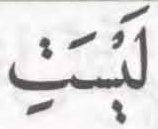 لَيْسَتِ